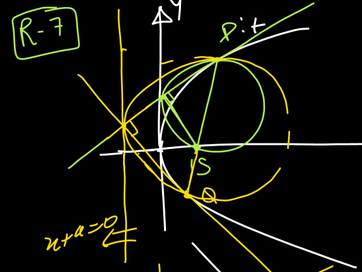 R-7
y
P:t
S
Q
x+a=0